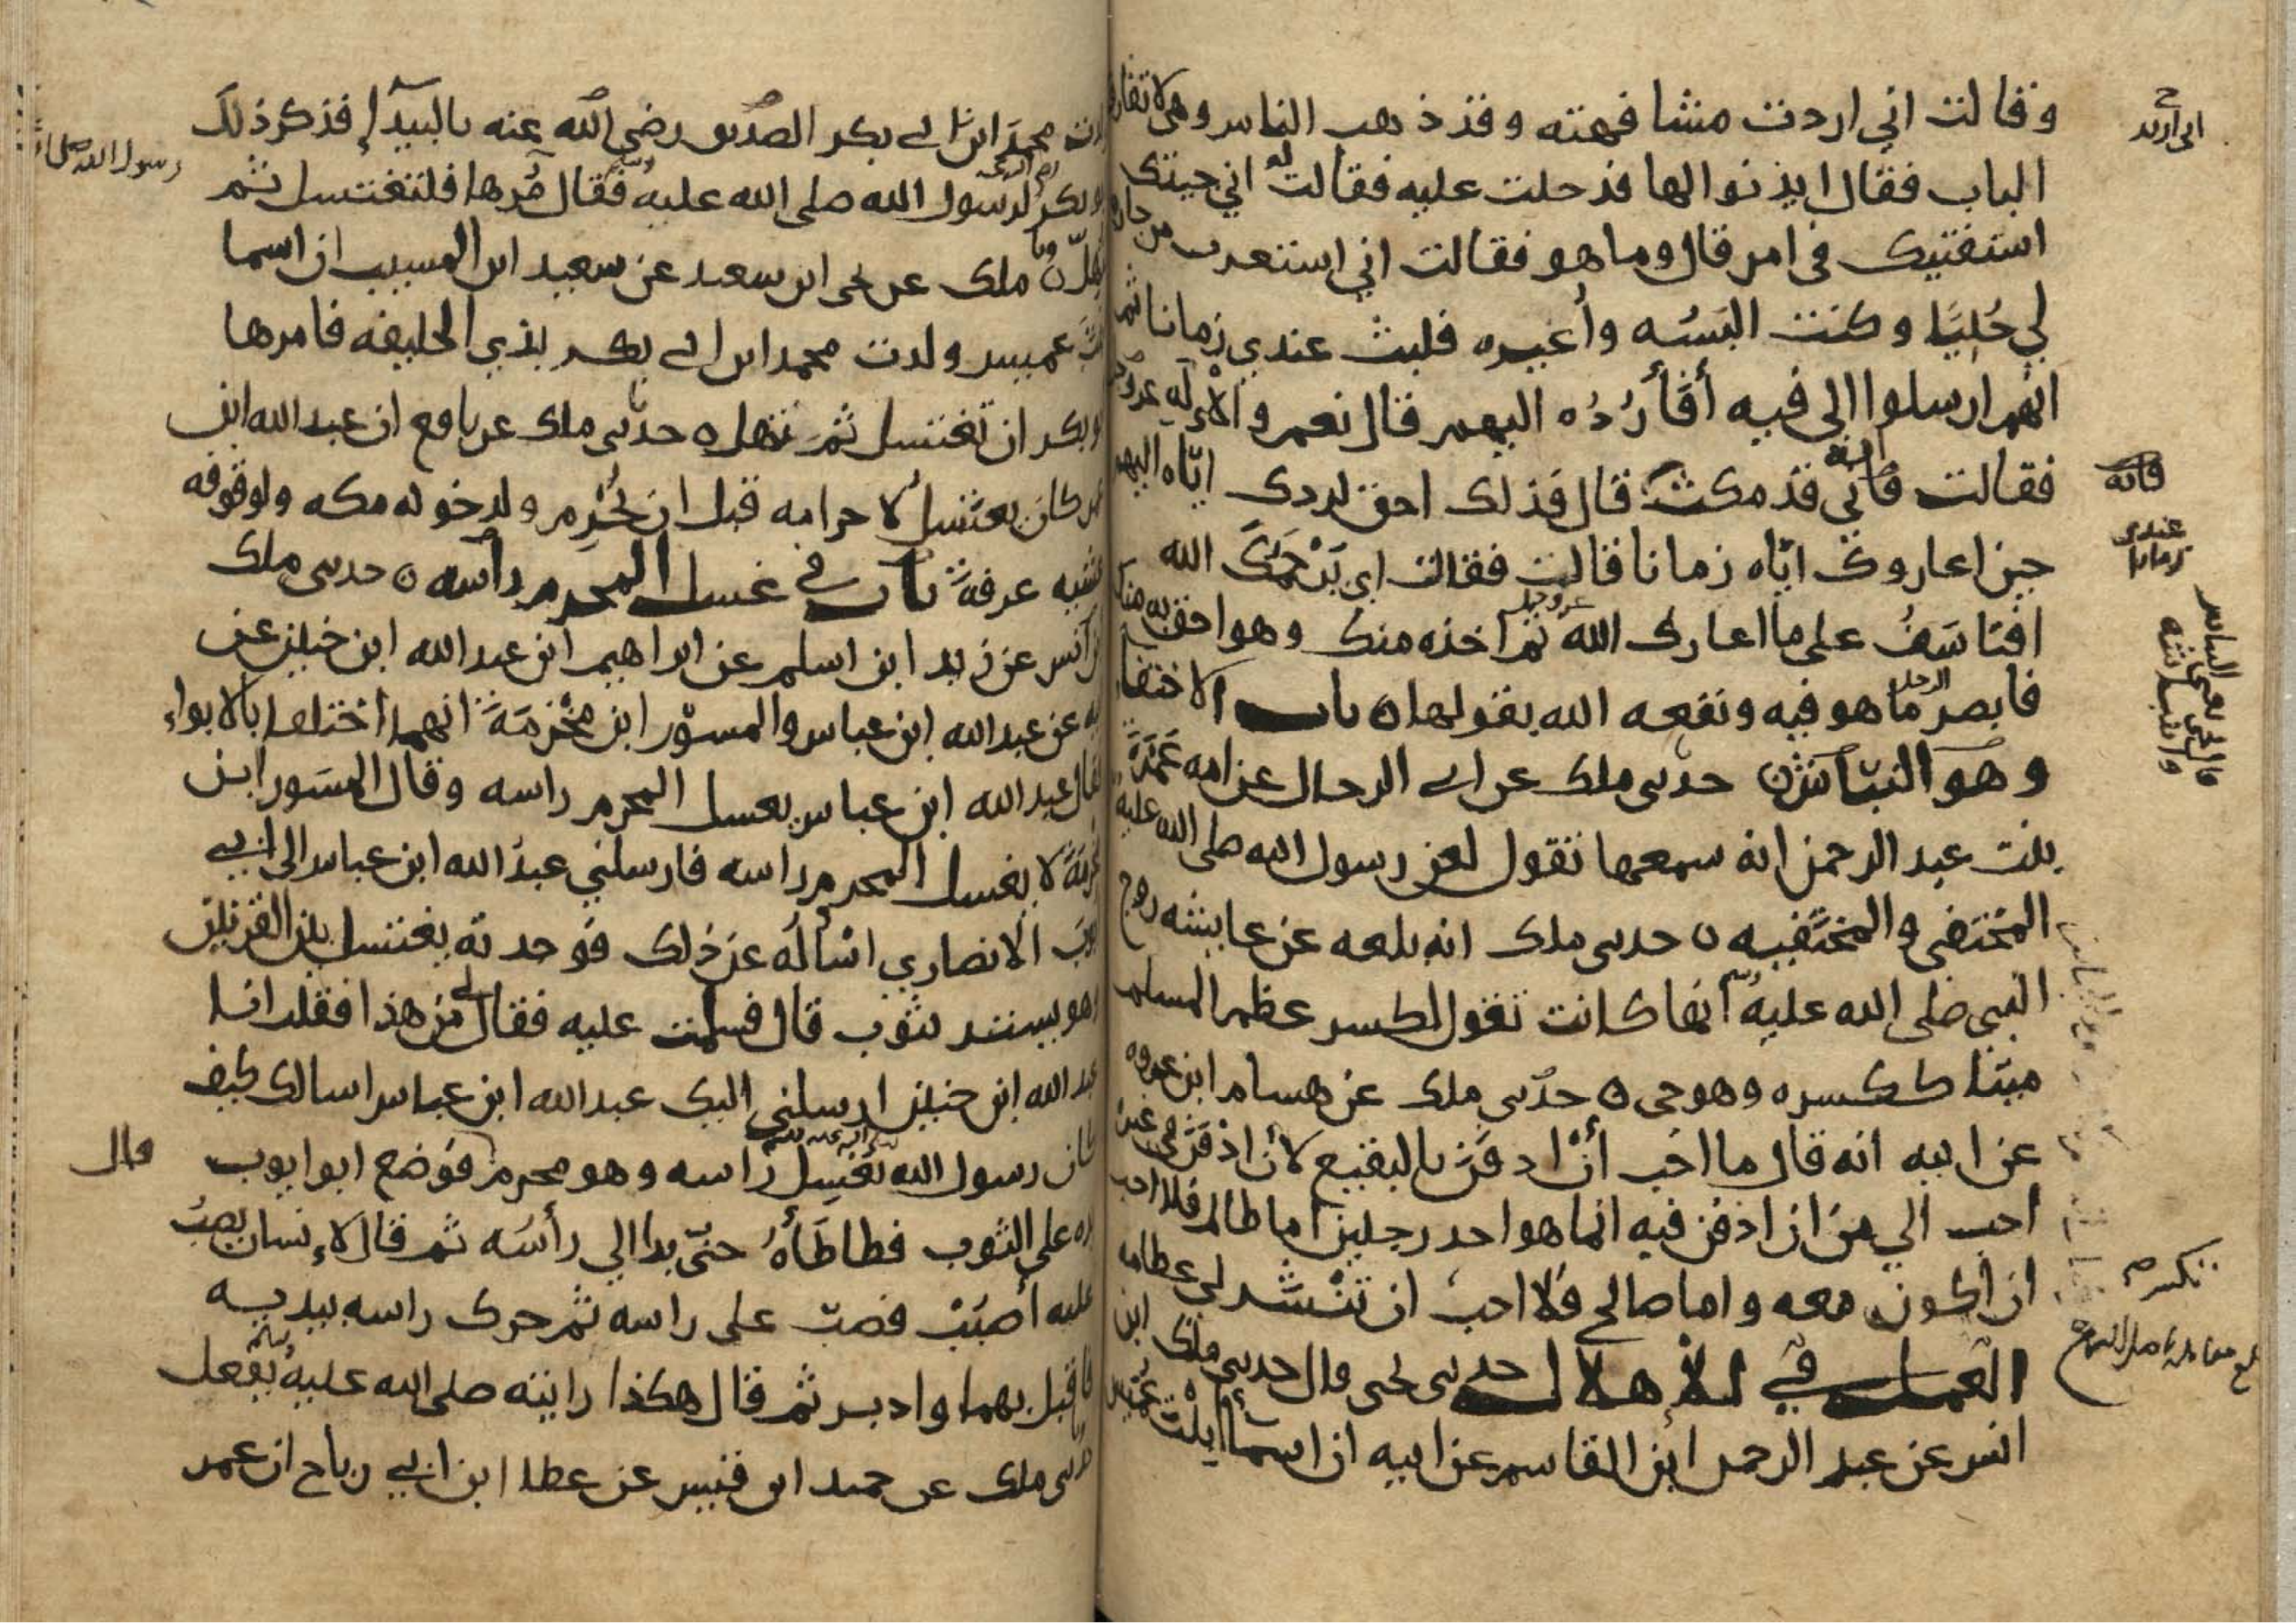 وقالت اني اردت مشافهته وقد ذهب الناس وهي لا تفارق
الباب فقال ايذنوا لها فدخلت عليه فقالت له اني جيتك
استفتيك في امر قال وما هو فقالت اني استعرت من جارة
لي حُليًا وكنت البَسُه وأعيره فلبث عندي زمانا ثم
انهم ارسلوا الي فيه أفأرُدُه اليهم قال نعم والله
فقالت فانه قد مكث قال فذلك احق لردك اياه اليهم
حين اعاروك اياه زمانا قالت فقالت اي يَرْحمك الله
افتاسَفُ على ما اعارك الله عز وجل ثم اخذه منك وهو احق به منك
فابصر الرجل ما هو فيه ونفعه الله بقولها ه باب الاختفا
وهو النبّاش ه حدثني ملك عن ابي الرجال عن امه عَمْرَةَ
بنت عبد الرحمن انه سمعها تقول لعن رسول الله صلى الله عليه
المختفي والمختفيه ه حدثني ملك انه بلغه عن عايشه زوج
النبي صلى الله عليه وسلم انها كانت تقول لكسر عظم المسلم
ميتا ككسره وهو حي ه حدثني ملك عن هشام ابن عروه
عن ابيه انه قال ما احب أنْ ادفن بالبقيع لأن ادفن في غيره
احب الي من ان ادفن فيه انما هو احد رجلين اما ظالم فلا احب
ان اكون معه واما صالح فلا احب ان تُنْشر لي عظامه
العمل في الأهلال حدثني يحيى قال حدثني ملك ابن
انس عن عبد الرحمن ابن القاسم عن ابيه ان اسمآ ابنْت عُميس
اني اريد
فانه
عندي زمانا
تكسر
ولدت محمد ابن ابي بكر الصديق رضي الله عنه بالبيدآء فذكر ذلك
ابو بكر لرسول الله صلى الله عليه وسلم فقال مُرها فلتغتسل ثم
لتهلّ ه وما ملك عن يحيى ابن سعيد عن سعيد ابن المسيب ان اسما
بنت عميس ولدت محمد ابن ابي بكر بذي الحليفه فامرها
ابو بكر ان تغتسل ثم تهل ه حدثني ملك عن نافع ان عبد الله ابن
عمر كان يغتسل لاحرامه قبل ان يُحْرم ولدخوله مكه ولوقوفه
عشيه عرفةَ باب في غسل المحرم رأسه ه حدثني ملك
بن أنس عن زيد ابن اسلم عن ابراهيم ابن عبد الله ابن حنين عن
ابيه عن عبد الله ابن عباس والمسوّر ابن مَخْرَمَةَ انهما اختلفا بالابواء
فقال عبد الله ابن عباس يغسل المحرم راسه وقال المسَور ابن
مخرمة لا يغسل المحرم راسه فارسلني عبدُ الله ابن عباس الى ابي
ايوب الانصاري اسْالُه عن ذلك فوجدته يغتسل بين القرنين
وهو يستتر بثوب قال فسلمت عليه فقال لي من هذا فقلت انا
عبد الله ابن حنين ارسلني اليك عبد الله ابن عباس اسالك كيف
كان رسول الله صلى الله عليه وسلم يغسِل رَاسه وهو محرم فوضع ابو ايوب
يده على الثوب فطاطَأهُ حتّى بدا لي رأسَه ثم قال لاِنسان يصبُ
عليه أصبُبْ فصبّ على راسه ثم حرك راسه بيديه
فاقبل بهما وادبر ثم قال هكذا رايته صلى الله عليه وسلم يفعل
حدثني ملك عن حميد ابن قيس عن عطا ابن ابي رباح ان عمر
رسول الله صلى الله
قال